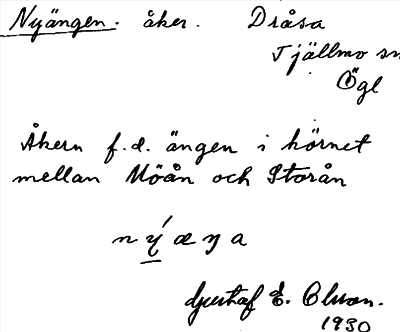 Nyängen. åker. Dråsa
Tjällmo sn
Ögl
Åkern f.d. ängen i hörnet
mellan Möån och Storån
nýæŋa
Gustaf E. Olsson.
1930